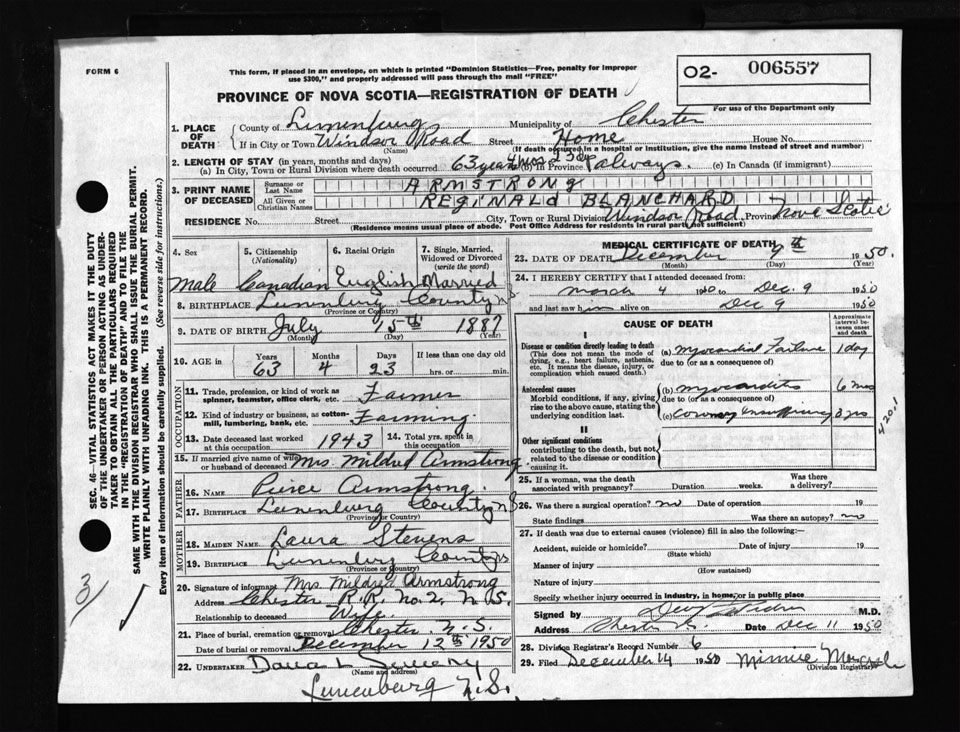 FORM 6
This form, if placed in an envelope, on which is printed "Dominion Statistics—Free, penalty for improper
use $300," and properly addressed will pass through the mail "FREE"
O2- 006557
For use of the Department only
PROVINCE OF NOVA SCOTIA—REGISTRATION OF DEATH
1. PLACE OF DEATH
County of Lunenburg Municipality of Chester
If in City or Town Windsor Road Street Home House No.
(Name) (If death occurred in a hospital or institution, give the name instead of street and number)
2. LENGTH OF STAY (in years, months and days)
(a) In City, Town or Rural Division where death occurred 63 years 4 mos 23 ds (b) In Province always. (c) In Canada (if immigrant)
3. PRINT NAME OF DECEASED
Surname or Last Name ARMSTRONG
All Given or Christian Names REGINALD BLANCHARD
RESIDENCE No. Street City, Town or Rural Division Windsor Road, Province Nova Scotia
(Residence means usual place of abode. Post Office Address for residents in rural parts not sufficient)
4. Sex
5. Citizenship (Nationality)
6. Racial Origin
7. Single, Married, Widowed or Divorced (write the word)
Male Canadian English Married
8. BIRTHPLACE Lunenburg County NS
(Province or Country)
9. DATE OF BIRTH July 15th 1887
(Month) (Day) (Year)
10. AGE in Years Months Days If less than one day old
63 4 23 hrs. or min.
OCCUPATION
11. Trade, profession, or kind of work as spinner, teamster, office clerk, etc. Farmer
12. Kind of industry or business, as cotton-mill, lumbering, bank, etc. Farming
13. Date deceased last worked at this occupation 1943 14. Total yrs. spent in this occupation
15. If married give name of wife or husband of deceased Mrs. Mildred Armstrong
FATHER
16. NAME Peirce Armstrong.
17. BIRTHPLACE Lunenburg County NS
(Province or Country)
MOTHER
18. MAIDEN NAME Laura Stevens
19. BIRTHPLACE Lunenburg County NS
(Province or Country)
20. Signature of informant Mrs Mildred Armstrong
Address Chester R.R. No. 2, N.S.
Relationship to deceased Wife.
21. Place of burial, cremation or removal Chester N.S.
Date of burial or removal December 12th 1950
22. UNDERTAKER
(Name and address)
Lunenburg N.S.
MEDICAL CERTIFICATE OF DEATH
23. DATE OF DEATH December 9th 1950.
(Month) (Day) (Year)
24. I HEREBY CERTIFY that I attended deceased from
March 4 1950 to Dec. 9 1950
and last saw him alive on Dec 9 1950
CAUSE OF DEATH
Approximate interval between onset and death
I
Disease or condition directly leading to death
(This does not mean the mode of dying, e.g., heart failure, asthenia, etc. It means the disease, injury, or complication which caused death.)
(a) Myocardial Failure 1 day
due to (or as a consequence of)
Antecedent causes
Morbid conditions, if any, giving rise to the above cause, stating the underlying condition last.
(b) Myocarditis 6 mos
due to (or as a consequence of)
(c) Coronary Insufficiency 3 yrs
4201
II
Other significant conditions
contributing to the death, but not related to the disease or condition causing it.
25. If a woman, was the death associated with pregnancy? Duration weeks. Was there a delivery?
26. Was there a surgical operation? no Date of operation 19
State findings Was there an autopsy? no
27. If death was due to external causes (violence) fill in also the following:
Accident, suicide or homicide? Date of injury 19
(State which)
Manner of injury
(How sustained)
Nature of injury
Specify whether injury occurred in industry, in home, or in public place
Signed by M.D.
Address Chester Date Dec 11 1950
28. Division Registrar's Record Number 6
29. Filed December 14 1950 Minnie
(Division Registrar)
SEC. 46—VITAL STATISTICS ACT MAKES IT THE DUTY
OF THE UNDERTAKER OR PERSON ACTING AS UNDER-
TAKER TO OBTAIN ALL THE PARTICULARS REQUIRED
IN THE "REGISTRATION OF DEATH" AND TO FILE THE
SAME WITH THE DIVISION REGISTRAR WHO SHALL ISSUE THE BURIAL PERMIT.
WRITE PLAINLY WITH UNFADING INK. THIS IS A PERMANENT RECORD.
Every item of information should be carefully supplied. (See reverse side for instructions.)
3/